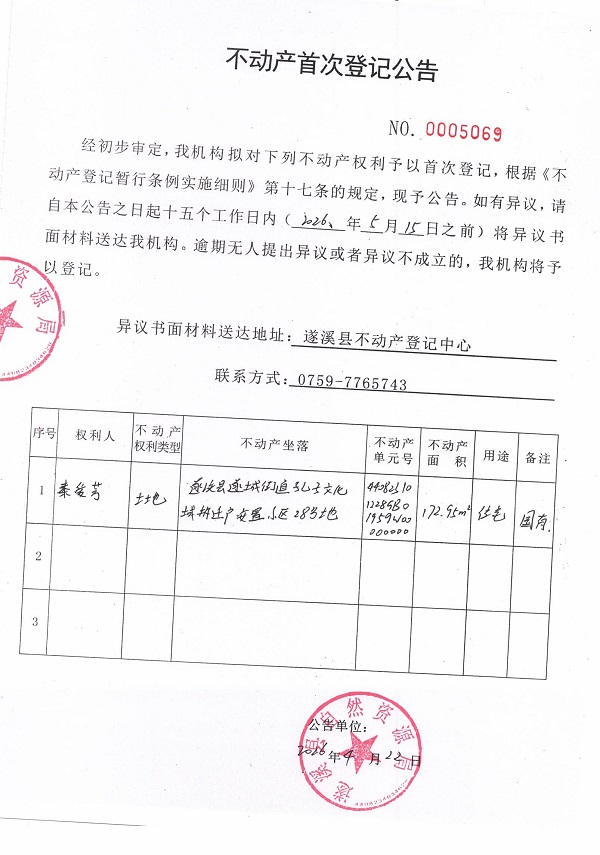 不动产首次登记公告
NO. 0005069
经初步审定，我机构拟对下列不动产权利予以首次登记，根据《不
动产登记暂行条例实施细则》第十七条的规定，现予公告。如有异议，请
自本公告之日起十五个工作日内（2026年5月15日之前）将异议书
面材料送达我机构。逾期无人提出异议或者异议不成立的，我机构将予
以登记。
异议书面材料送达地址：遂溪县不动产登记中心
联系方式：0759-7765743
序号 权利人 不动产权利类型 不动产坐落 不动产单元号 不动产面积 用途 备注
1 土地 遂溪县遂城街道孔子文化
城拆迁户安置小区28号地 172.95m² 住宅 国有.
2
3
公告单位：
2026年4月22日
遂溪县自然资源局
资源局